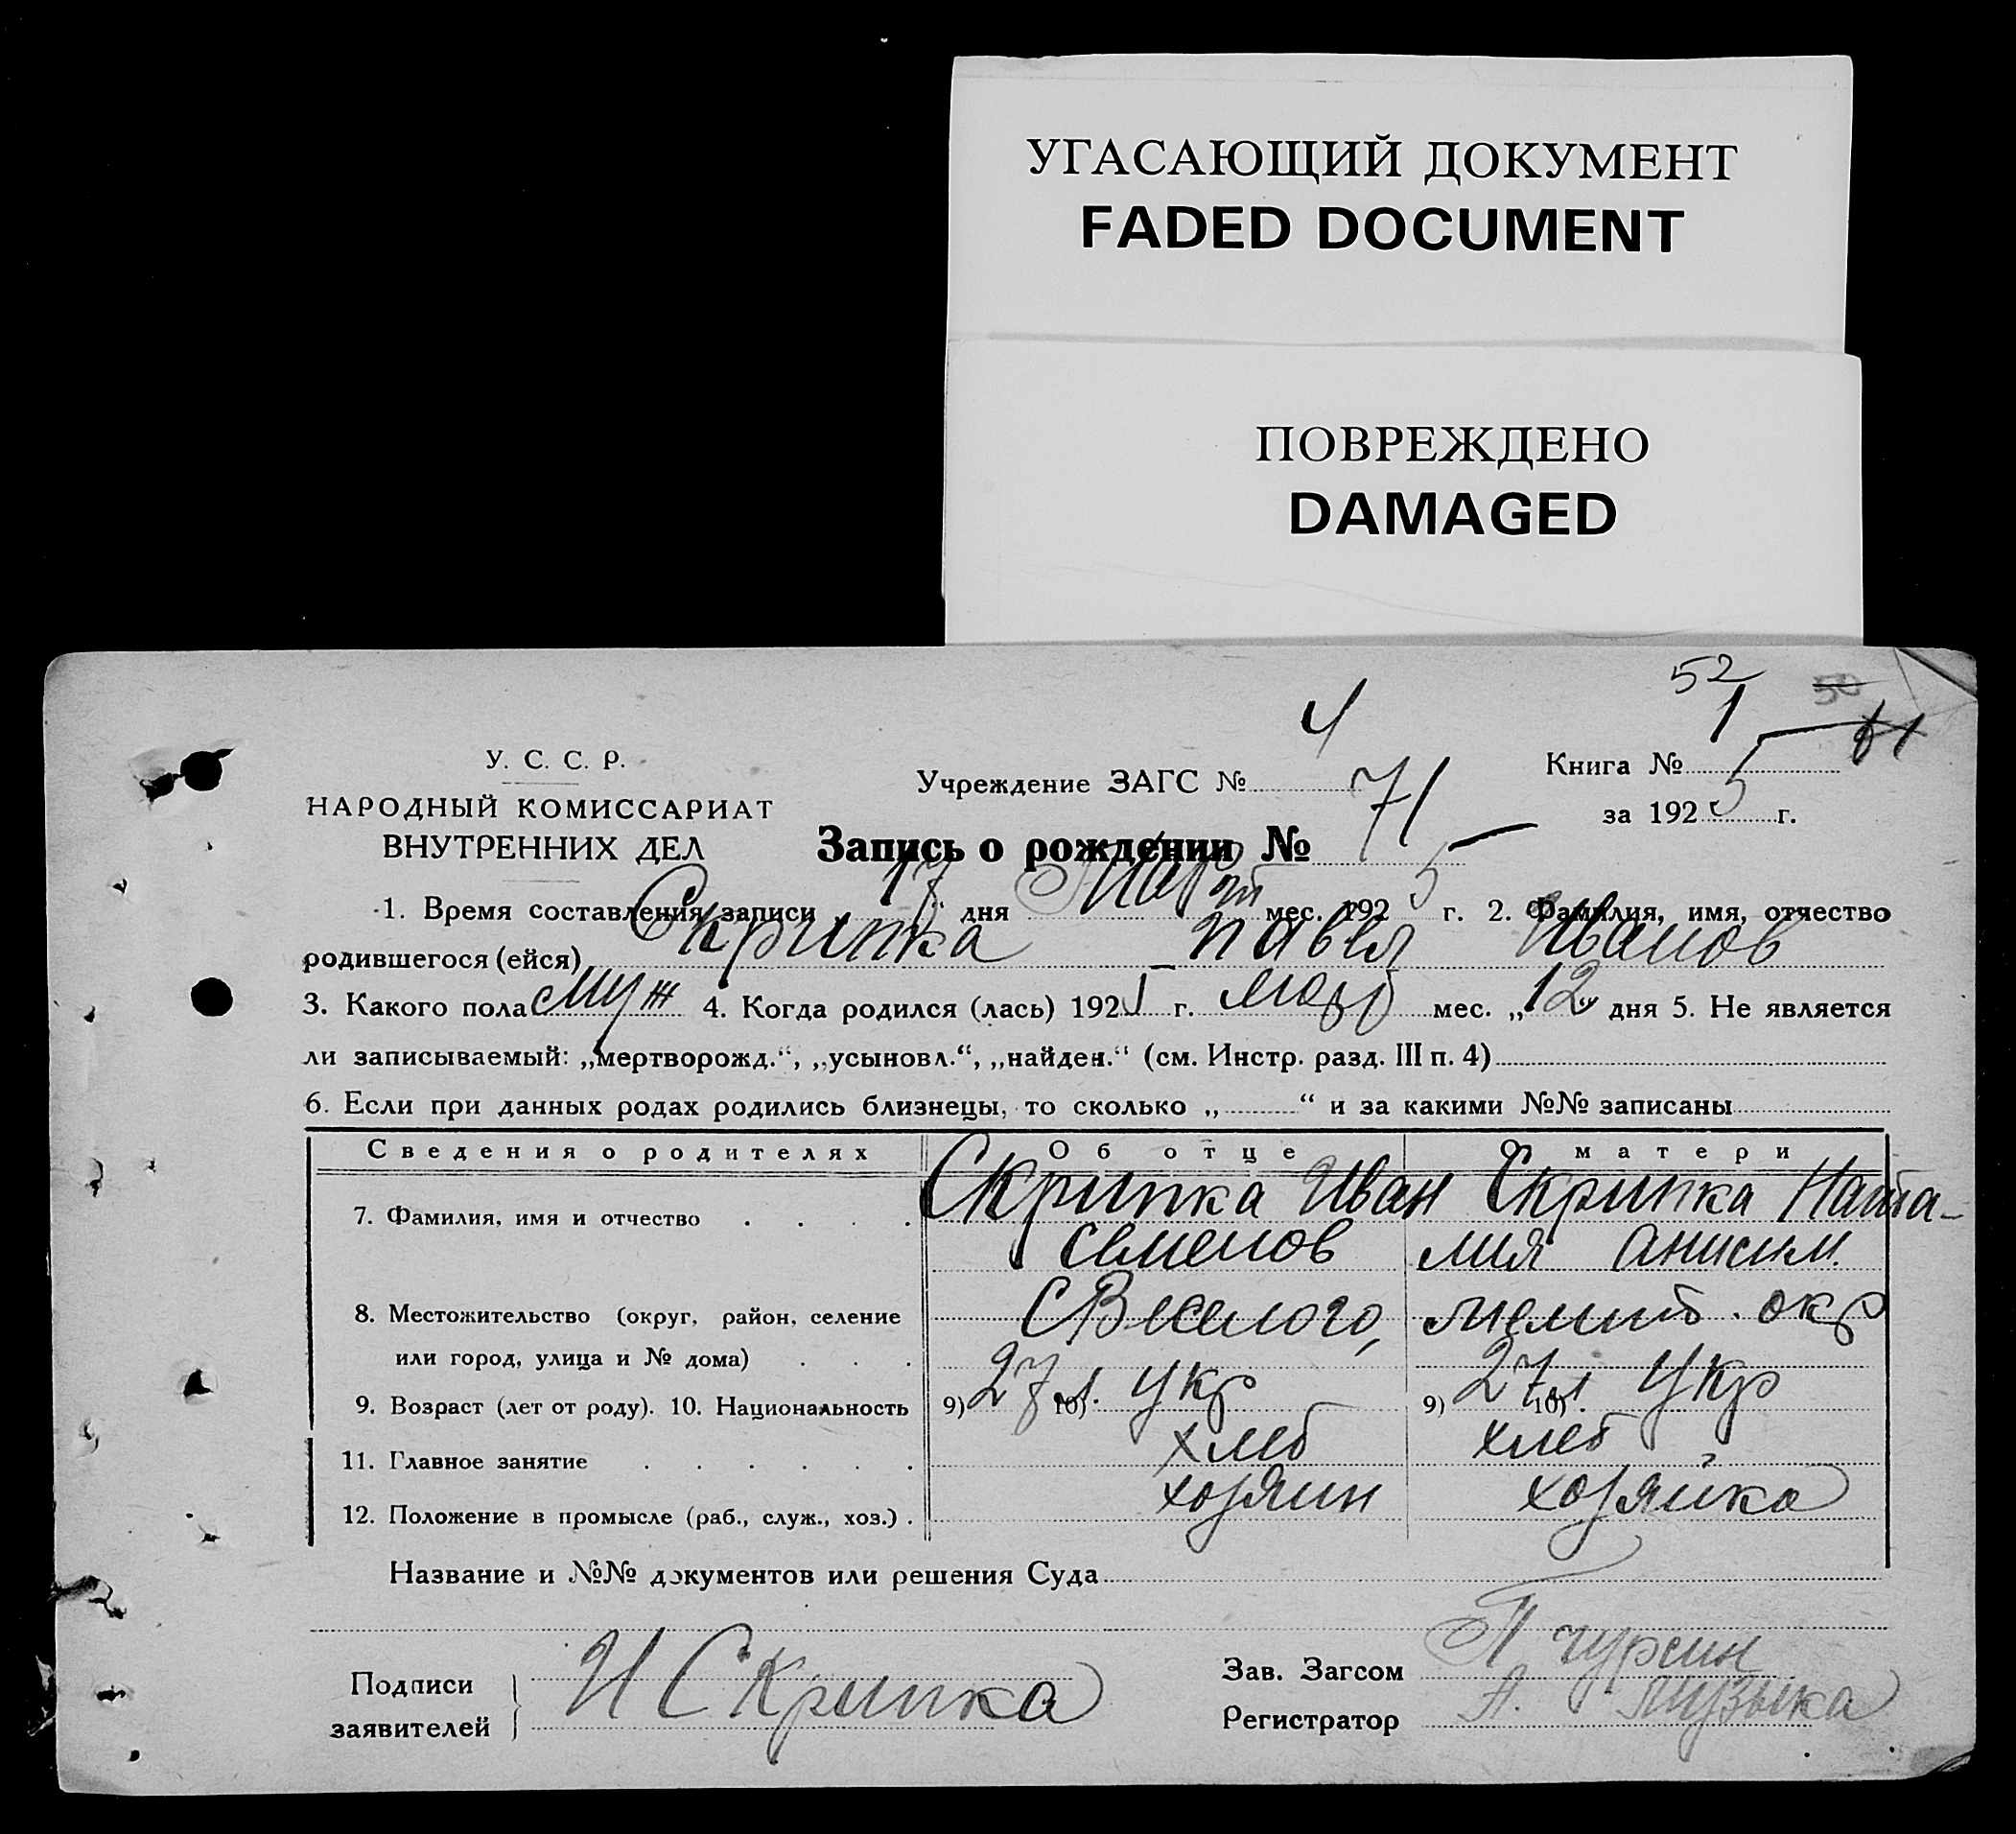 УГАСАЮЩИЙ ДОКУМЕНТ
FADED DOCUMENT
ПОВРЕЖДЕНО
DAMAGED
52 50
У. С. С. Р.
НАРОДНЫЙ КОМИССАРИАТ
ВНУТРЕННИХ ДЕЛ
Учреждение ЗАГС № 4
Книга № 1
за 1925 г.
Запись о рождении № 71
1. Время составления записи 17 дня Март мес. 1925 г. 2. Фамилия, имя, отчество
родившегося (ейся) Скрипка Павел Иванов
3. Какого пола муж 4. Когда родился (лась) 1925 г. март мес. „12“ дня 5. Не является
ли записываемый: „мертворожд.“, „усыновл.“, „найден.“ (см. Инстр. разд. III п. 4)
6. Если при данных родах родились близнецы, то сколько „ “ и за какими №№ записаны
Сведения о родителях Об отце О матери
7. Фамилия, имя и отчество Скрипка Иван Скрипка Ната-
Семенов лия Анисим.
8. Местожительство (округ, район, селение С Веселого, мелит. окр
или город, улица и № дома)
9. Возраст (лет от роду). 10. Национальность 9) 27 л. 10) Укр 9) 27 л 10) Укр
11. Главное занятие хлеб хлеб
12. Положение в промысле (раб., служ., хоз.) хозяин хозяйка
Название и №№ документов или решения Суда
Подписи
заявителей И Скрипка
Зав. Загсом П Чурсин
Регистратор А. Музыка